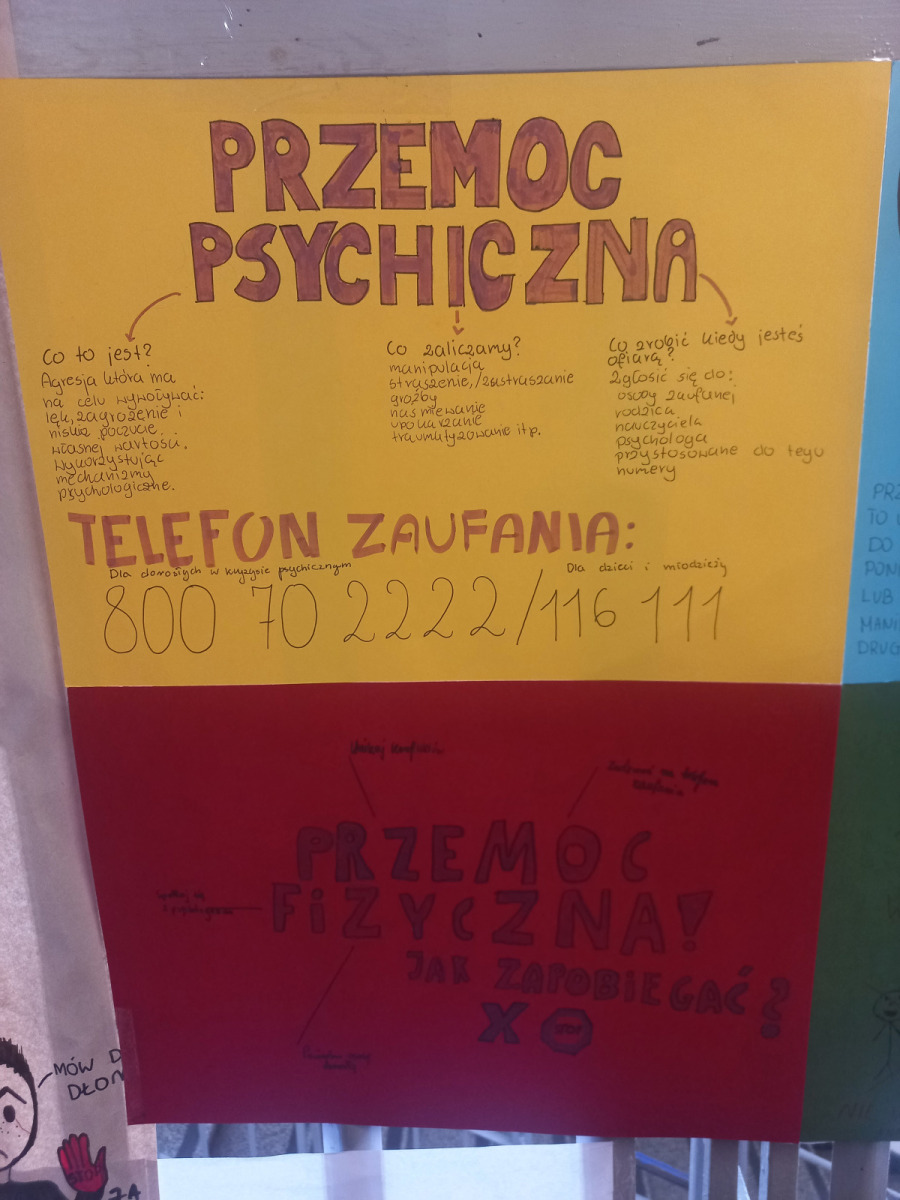 PRZEMOC
PSYCHICZNA
Co to jest?
Agresja która ma
na celu wywoływać:
lęk, zagrożenie i
niskie poczucie
własnej wartości.
wykorzystując
mechanizmy
psychologiczne.
Co zaliczamy?
manipulacja
straszenie,/zastraszanie
groźby
naśmiewanie
upokarzanie
traumatyzowanie itp.
Co zrobić kiedy jesteś
ofiarą?
zgłosić się do:
osoby zaufanej
rodzica
nauczyciela
psychologa
przystosowane do tego
numery
TELEFON ZAUFANIA:
Dla dorosłych w kryzysie psychicznym
Dla dzieci i młodzieży
800 70 2222/116 111
PRZEMOC
FiZYCZNA!
JAK ZAPOBIEGAĆ?
X STOP
MÓW D
DŁON
STOP
ZA
PRZ
TO
DO
PON
LUB
MANI
DRUG